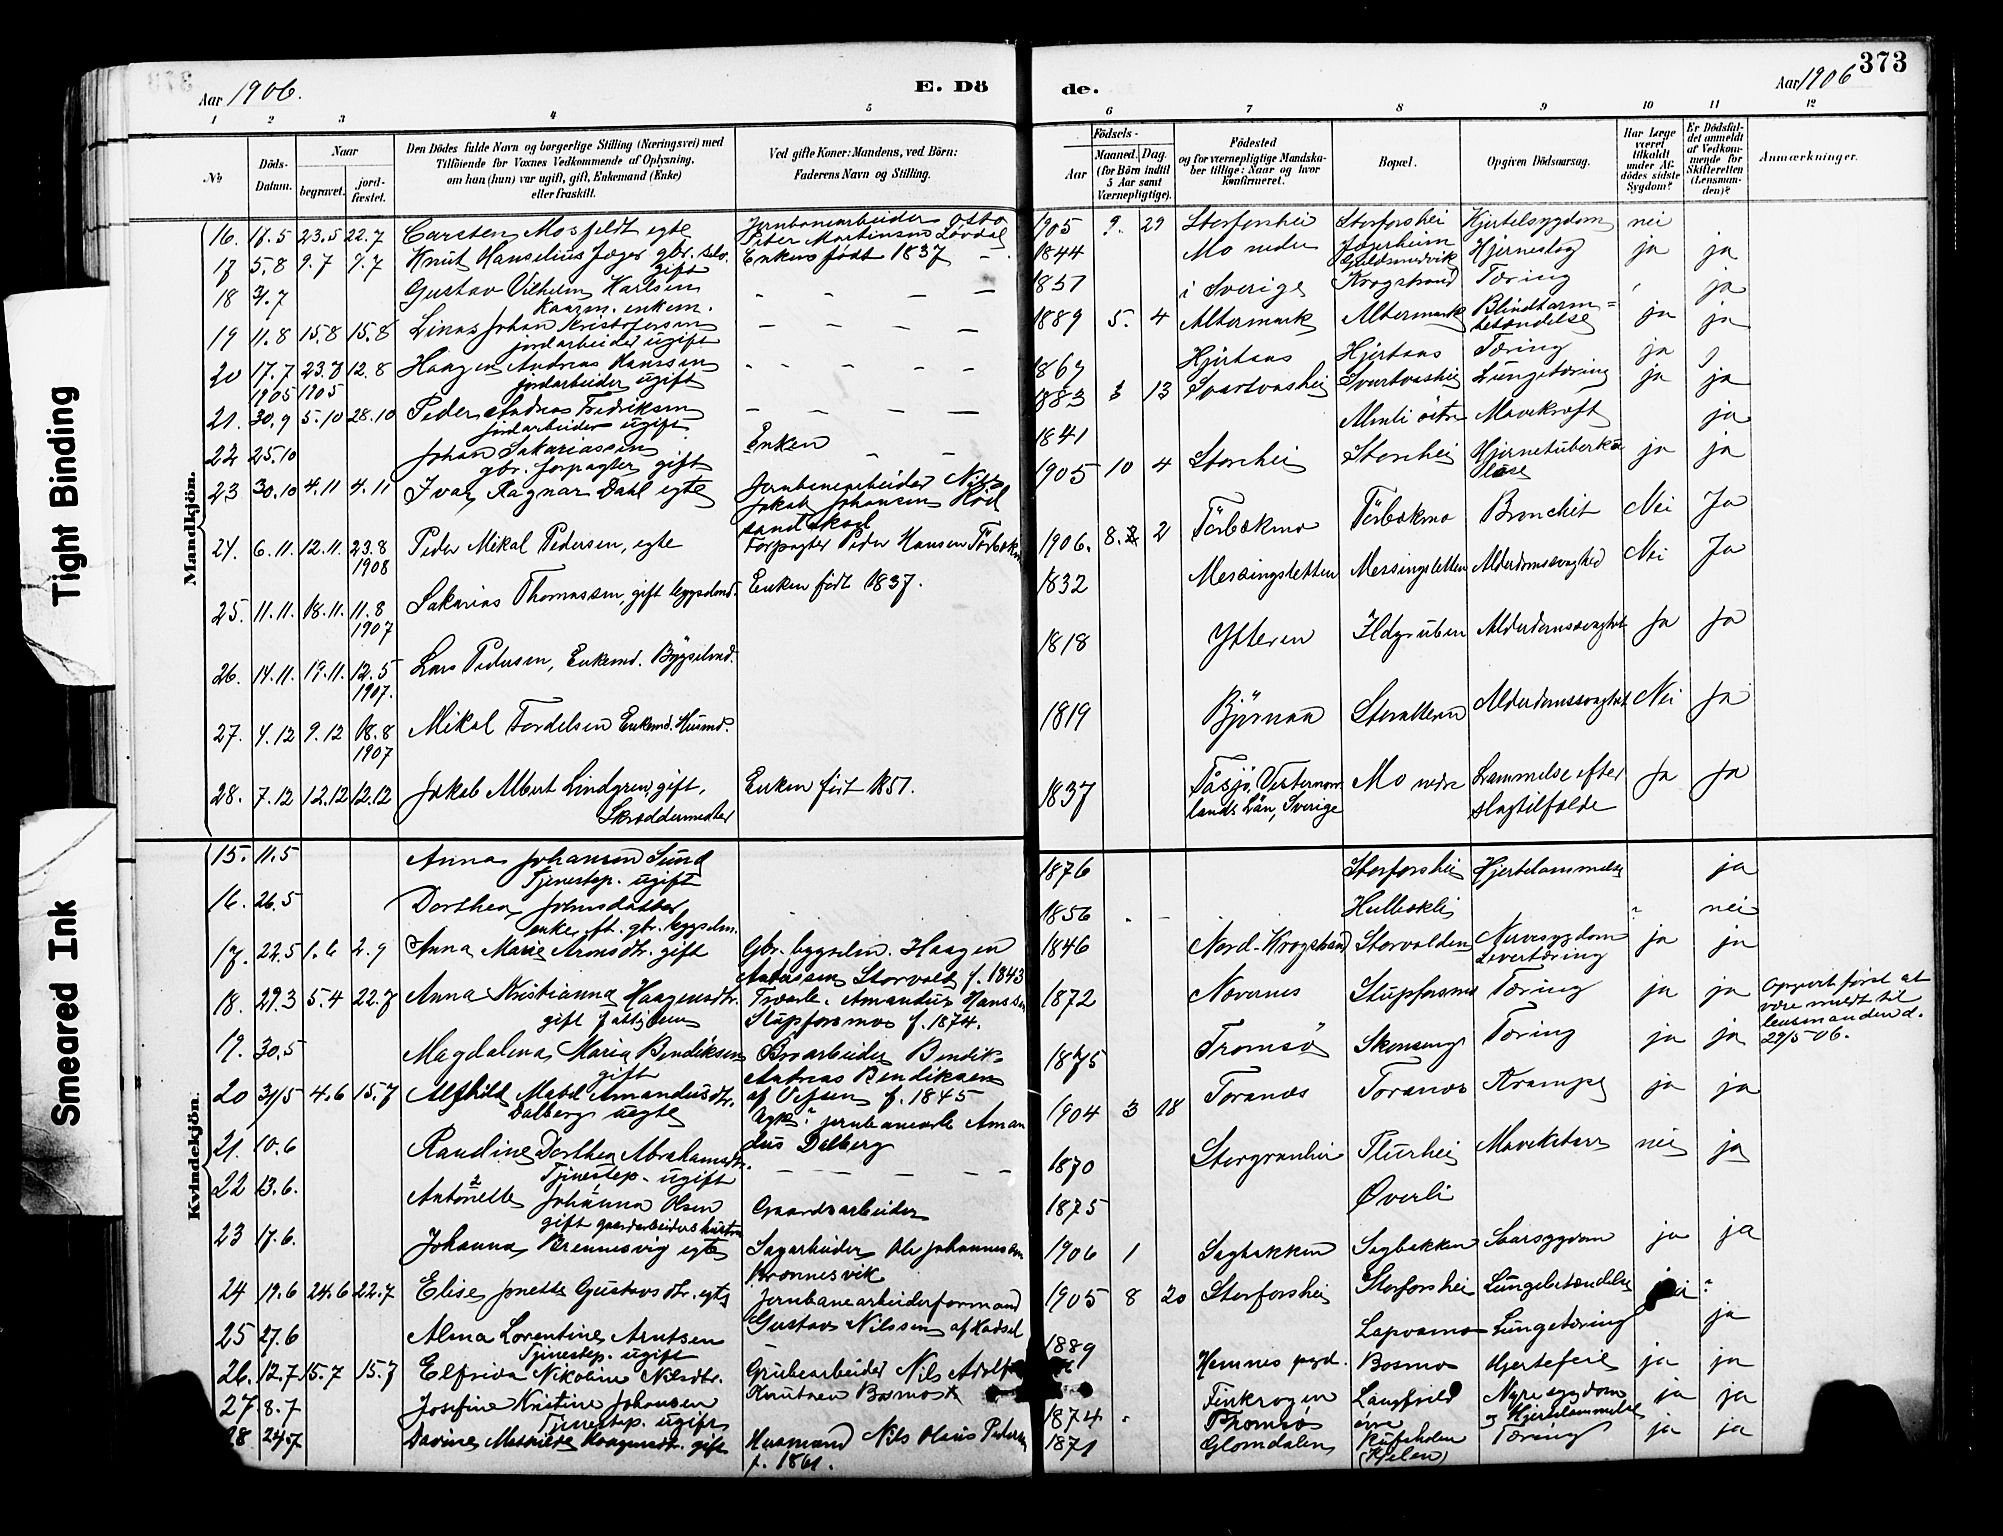 Tight Binding
Smeared Ink
Aar 1906.
E. Dö
de.
Aar 1906
373
1 2 3 4 5 6 7 8 9 10 11 12
No
Döds-
Datum.
Naar
begravet.
jord-
fæstet.
Den Dödes fulde Navn og borgerlige Stilling (Næringsvei) med
Tilföiende for Voxnes Vedkommende af Oplysning,
om han (hun) var ugift, gift, Enkemand (Enke)
eller fraskilt.
Ved gifte Koner: Mandens, ved Börn:
Faderens Navn og Stilling.
Födsels-
Aar
Maaned. Dag.
(for Börn indtil
5 Aar samt
Værnepligtige).
Födested
og for værnepligtige Mandska-
ber tillige: Naar og hvor
konfirmeret.
Bopæl.
Opgiven Dödsaarsag.
Har Læge
været
tilkaldt
under Af-
dödes sidste
Sygdom?
Er Dödsfal-
det anmeldt
af Vedkom-
mende for
Skifteretten
(Lensman-
den)?
Anmærkninger.
Mandkjön.
16. 18.5 23.5 22.7 Carsten Mosfeldt egte Jernbanearbeider Otto
Peter Martinsen Løvdal 1905 9. 29 Storforshei Storforshei Hjertesygdom nei
17 5.8 9.7 9.7 Knut Hanselius Jæger gbr. selv.
gift Enken født 1837 1844 Mo nedre Jægerheim
Guldsmedvik Hjerneslag ja ja
18 31.7 Gustav Vilhelm Karlsen
Kaarm. enkem. 1857 i Sverige Krogstrand Tæring ja
19 11.8 15.8 15.8 Linas Johan Kristofersen
jordarbeider ugift 1889 5. 4 Altermark Altermark Blindtarm=
betændelse ja ja
20 17.7 23.7 12.8
1905 1905 Haagen Andreas Hanssen
jordarbeider ugift 1867 Hjertaas Hjertaas Tæring ja
21. 30.9 5.10 28.10 Peder Andreas Fredriksen
jordarbeider ugift 1883 3 13 Svartvashei Svartvashei Lungetæring ja ja
22 25.10 Johan Sakariassen
gbr. forpagter gift Enken 1841 Almli Mavekræft ja
23 30.10 4.11 4.11 Ivar Ragnar Dahl egte Jernbanearbeider Nils
Jakob Johansen
1905 10 4 Storshei Storshei Hjernetuberku
lose ja ja
24. 6.11. 12.11. 23.8
1908 Peder Mikal Pedersen, egte Forpagter Peder Hansen Tørbækmo 1906. 8. 2 Tørbækmo Tørbækmo Bronchit Nei Ja
25. 11.11. 18.11. 11.8
1907 Sakarias Thomassen, gift bygselmd. Enken født 1837. 1832 Messingsletten Messingsletten Alderdomssvaghed Nei Ja
26. 14.11. 19.11. 12.5
1907. Lars Pedersen, Enkemd. Bygselmd. 1818 Ytteren Ildgruben Alderdomssvaghed Ja Ja
27. 4.12 9.12 18.8
1907 Mikal Tordelsen Enkemd. Husmd. 1819 Bjørnaa Storalteren Alderdomssvaghet Nei Ja
28. 7.12 12.12 12.12 Jakob Albert Lindgren, gift,
Skræddermester Enken født 1851. 1837 Tåsjø, Vesternorr-
lands Län, Sverige Mo nedre Lammelse efter
slagtilfælde Ja Ja
Kvindekjön.
15. 11.5 Anna Johansen Sund
Tjenestep. ugift 1876 Storforshei Hjertelammelse ja
16. 26.5 Dorthea Johnsdatter
enke ft. gbr. bygselm. 1856 Hulbækli nei
17. 22.5 1.6 2.9 Anna Marie Aronsdtr. gift Gbr. bygselm. Haagen
Andersen Storvold f. 1843 1846 Nord-Krogstrand Storvolden Nervesygdom
Levertæring ja ja
18. 29.3 5.4 22.7 Anna Kristianna Haagensdtr.
gift Amandus Hanssen
Stupforsmo f. 1874. 1872 Nævernes Stupforsmo Tæring ja ja Opgivet først at
være meldt til
lensmanden d.
29/5-06.
19. 30.5 Magdalena Maria Bendiksen
gift Broarbeider Bendik
Andreas Bendiksen
af Vefsen f. 1845 1875 Tromsø Skonseng Tæring ja ja
20 31/5 4.6 15.7 Alfhild Mabel Amandusdtr.
Dalberg uegte jernbanearb. Aman
dus Dalberg 1904 3 18 Toranes Toranes Krampe ja ja
21. 10.6 Raudine Dorthea Abrahamsdtr.
Tjenestep. ugift 1870 Storgranlia Plurhei Mavekatarr nei ja
22 13.6. Antonette Johanna Olsen
gift gaardarbeiders hustru Gaardsarbeider 1875 Øverli
23 17.6. Johanna Brennesvig egte Sagarbeider Ole Johannessen
Bronnesvik 1906 1 Sagbakken Sagbakken Saarsygdom ja ja
24 19.6 24.6 22.7 Elise Jonette Gustavsdtr. egte Jernbanearbeiderformand
Gustav Nilssen af Hadsel 1905 8 20 Storforshei Storforshei Lungebetændelse ?
25 27.6 Alma Lorentine Arntsen
Tjenestep. ugift 1889 Lapvamo Lungetæring ja
26. 12.7 15.7 15.7 Elfrida Nikoline Nilsdtr. Grubearbeider Nils Adolf
Knutsen Bosmo Hemnes pgd. Bosmo Hjertefeil ja ja
27 8.7 Josefine Kristine Johansen
Tjenestep. ugift 1874 Finkrogen
Tromsø Langfield
øvre Nyresygdom
og Hjertelammelse ja ja
28 24.7 Davine Haagensdtr. gift Husmand Nils Olaus Pedersen
f. 1861. 1871 Glomdalen (Hjelen) Tæring ja ja